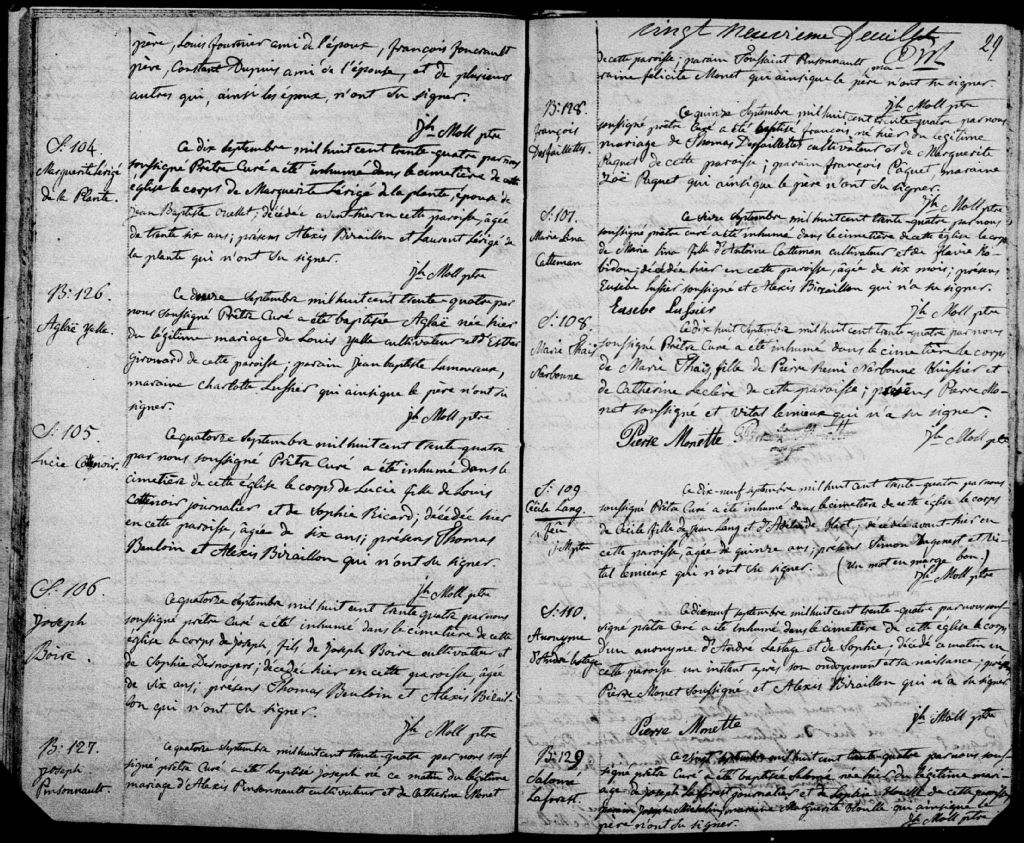 père, Louis Fournier ami de l'époux, françois Foucrault
père, Constant Dupuis ami de l'épouse, et de plusieurs
autres qui, ainsi les époux, n'ont su signer.
Jh Moll ptre
S. 104.
Marguerite Lérigé
de la Plante.
Ce dix septembre mil huit cent trente-quatre par nous
soussigné Prêtre Curé a été inhumé dans le cimetière de cette
église le corps de Marguerite Lérigé de la plante, épouse de
Jean Baptiste Ouellet, décédée avant hier en cette paroisse, âgée
de trente six ans; présens Alexis Biraillon et Laurent Lérigé de
la plante qui n'ont su signer.
Jh Moll ptre
B. 126.
Aglaé Yelle.
Ce douze Septembre mil huit cent trente-quatre par
nous soussigné Prêtre Curé a été baptisée Aglaë née hier
du légitime mariage de Louis Yelle cultivateur et d'Esther
Girouard de cette paroisse; parain Jean baptiste Lamoureux,
maraine charlotte Lussier qui ainsi que le père n'ont su
signer.
Jh Moll ptre
S. 105
Lucie Cottenoir.
Ce quatorze Septembre mil huit cent trente-quatre
par nous soussigné Prêtre Curé a été inhumé dans le
cimetière de cette église le corps de Lucie fille de Louis
Cottenoir journalier et de Sophie Bicard; décédée hier
en cette paroisse, âgée de six ans; présens Thomas
Beuloin et Alexis Biraillon qui n'ont su signer.
Jh Moll ptre
S. 106
Joseph
Boire.
Ce quatorze Septembre mil huit cent trente quatre par nous
soussigné prêtre Curé a été inhumé dans le cimetière de cette
église le corps de Joseph, fils de Joseph Boire cultivateur et
de Sophie Desnoyers; décédée hier en cette paroisse, âgée
de six ans, présens Thomas Beuloin et Alexis Birail-
lon qui n'ont su signer.
Jh Moll ptre
B. 127.
Joseph
Pinsonnault.
Ce quatorze Septembre mil huit cent trente-quatre par nous sous-
signé prêtre Curé a été baptisé Joseph né ce matin du légitime
mariage d'Alexis Pinsonnault cultivateur et de Catherine Monet
vingt neuvieme feuillet
29.
de cette paroisse; parain Toussaint Pinsonnault ma-
raine félicité Monet qui ainsi que le père n'ont su signer.
Jh Moll ptre
B. 128.
françois
Desfaillettes.
Ce quinze Septembre mil huit cent trente-quatre par nous
soussigné prêtre Curé a été baptisé françois né hier du légitime
mariage de Thomas Desfaillettes cultivateur et de Marguerite
Paquet de cette paroisse; parain françois Paquet, maraine
Zoë Paquet qui ainsi que le père n'ont su signer.
Jh Moll ptre
S. 107.
Marie Lina
Catteman
Ce seize Septembre mil huit cent trente-quatre par nous
soussigné prêtre curé a été inhumé dans le cimetière de cette église le corps
de Marie Lina fille d'Antoine Catteman cultivateur et de flavie Ro-
bidou; décédée hier en cette paroisse, âgée de six mois; présens
Eusèbe Lussier soussigné et Alexis Biraillon qui n'a su signer.
Eusebe Lussier Jh Moll ptre
S. 108.
Marie Thais
Narbonne
Ce dix huit Septembre mil huit cent trente-quatre par nous
soussigné Prêtre Curé a été inhumé dans le cimetière le corps
de Marie Thais, fille de Pierre Remi Narbonne Huissier et
de Catherine Leclere de cette paroisse; présens Pierre Mo-
net soussigné et Vital Lemieux qui n'a su signer.
Pierre Monette Jh Moll ptre
S. 109
Cécile Lang.
Ce dix-neuf septembre mil huit cent trente-quatre par nous
soussigné Prêtre Curé a été inhumé dans le cimetière de cette église le corps
de Cécile fille de Jean Lang et d'Adelaide Huot, décédée avant hier en
cette paroisse, âgée de quinze ans; présens Simon Dugenest et Vi-
tal Lemieux qui n'ont su signer. (Un mot en marge bon.)
Jh Moll ptre
S. 110.
Anonyme
d'André Lestage
Ce dix neuf septembre mil huit cent trente-quatre par nous sous-
signé prêtre Curé a été inhumé dans le cimetière de cette église le corps
d'un anonyme d'André Lestage et de Sophie; décédé ce matin en
cette paroisse un instant après son ondoyement et sa naissance; présens
Pierre Monet soussigné et Alexis Biraillon qui n'a su signer
Pierre Monette Jh Moll ptre
B. 129
Salomé
Laforest.
Ce vingt septembre mil huit cent trente-quatre par nous sous-
signé prêtre Curé a été baptisée Salomé née hier du légitime mari-
age de Joseph Laforest journalier et de Sophie Houlle de cette paroisse
parain Joseph maraine Marguerite Houille qui ainsi que le
père n'ont su signer.
Jh Moll ptre